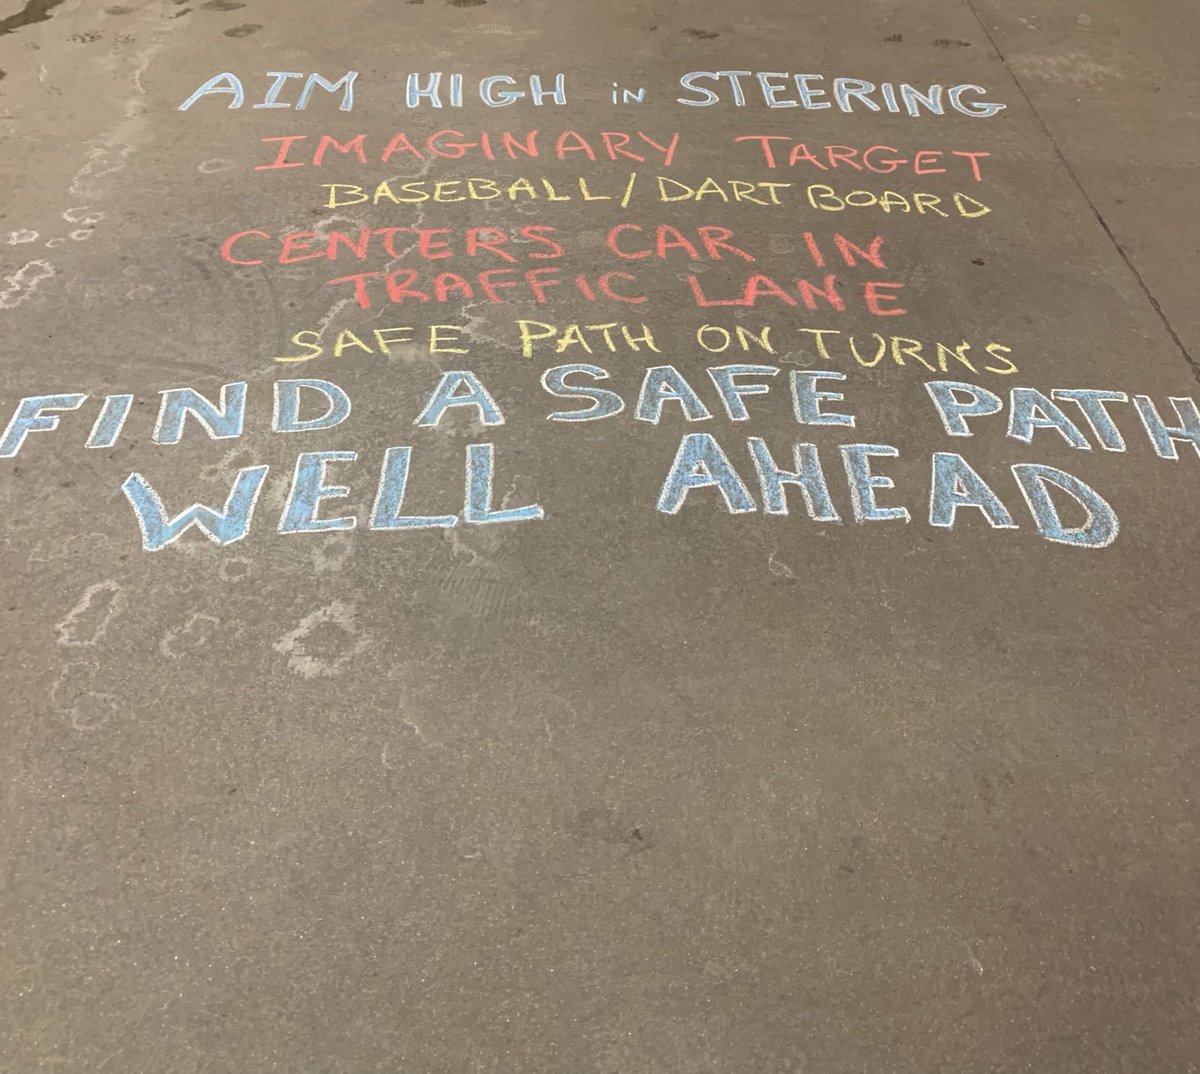 AIM HIGH in STEERING
IMAGINARY TARGET
BASEBALL/DART BOARD
CENTERS CAR IN
TRAFFIC LANE
SAFE PATH ON TURNS
FIND A SAFE PATH
WELL AHEAD